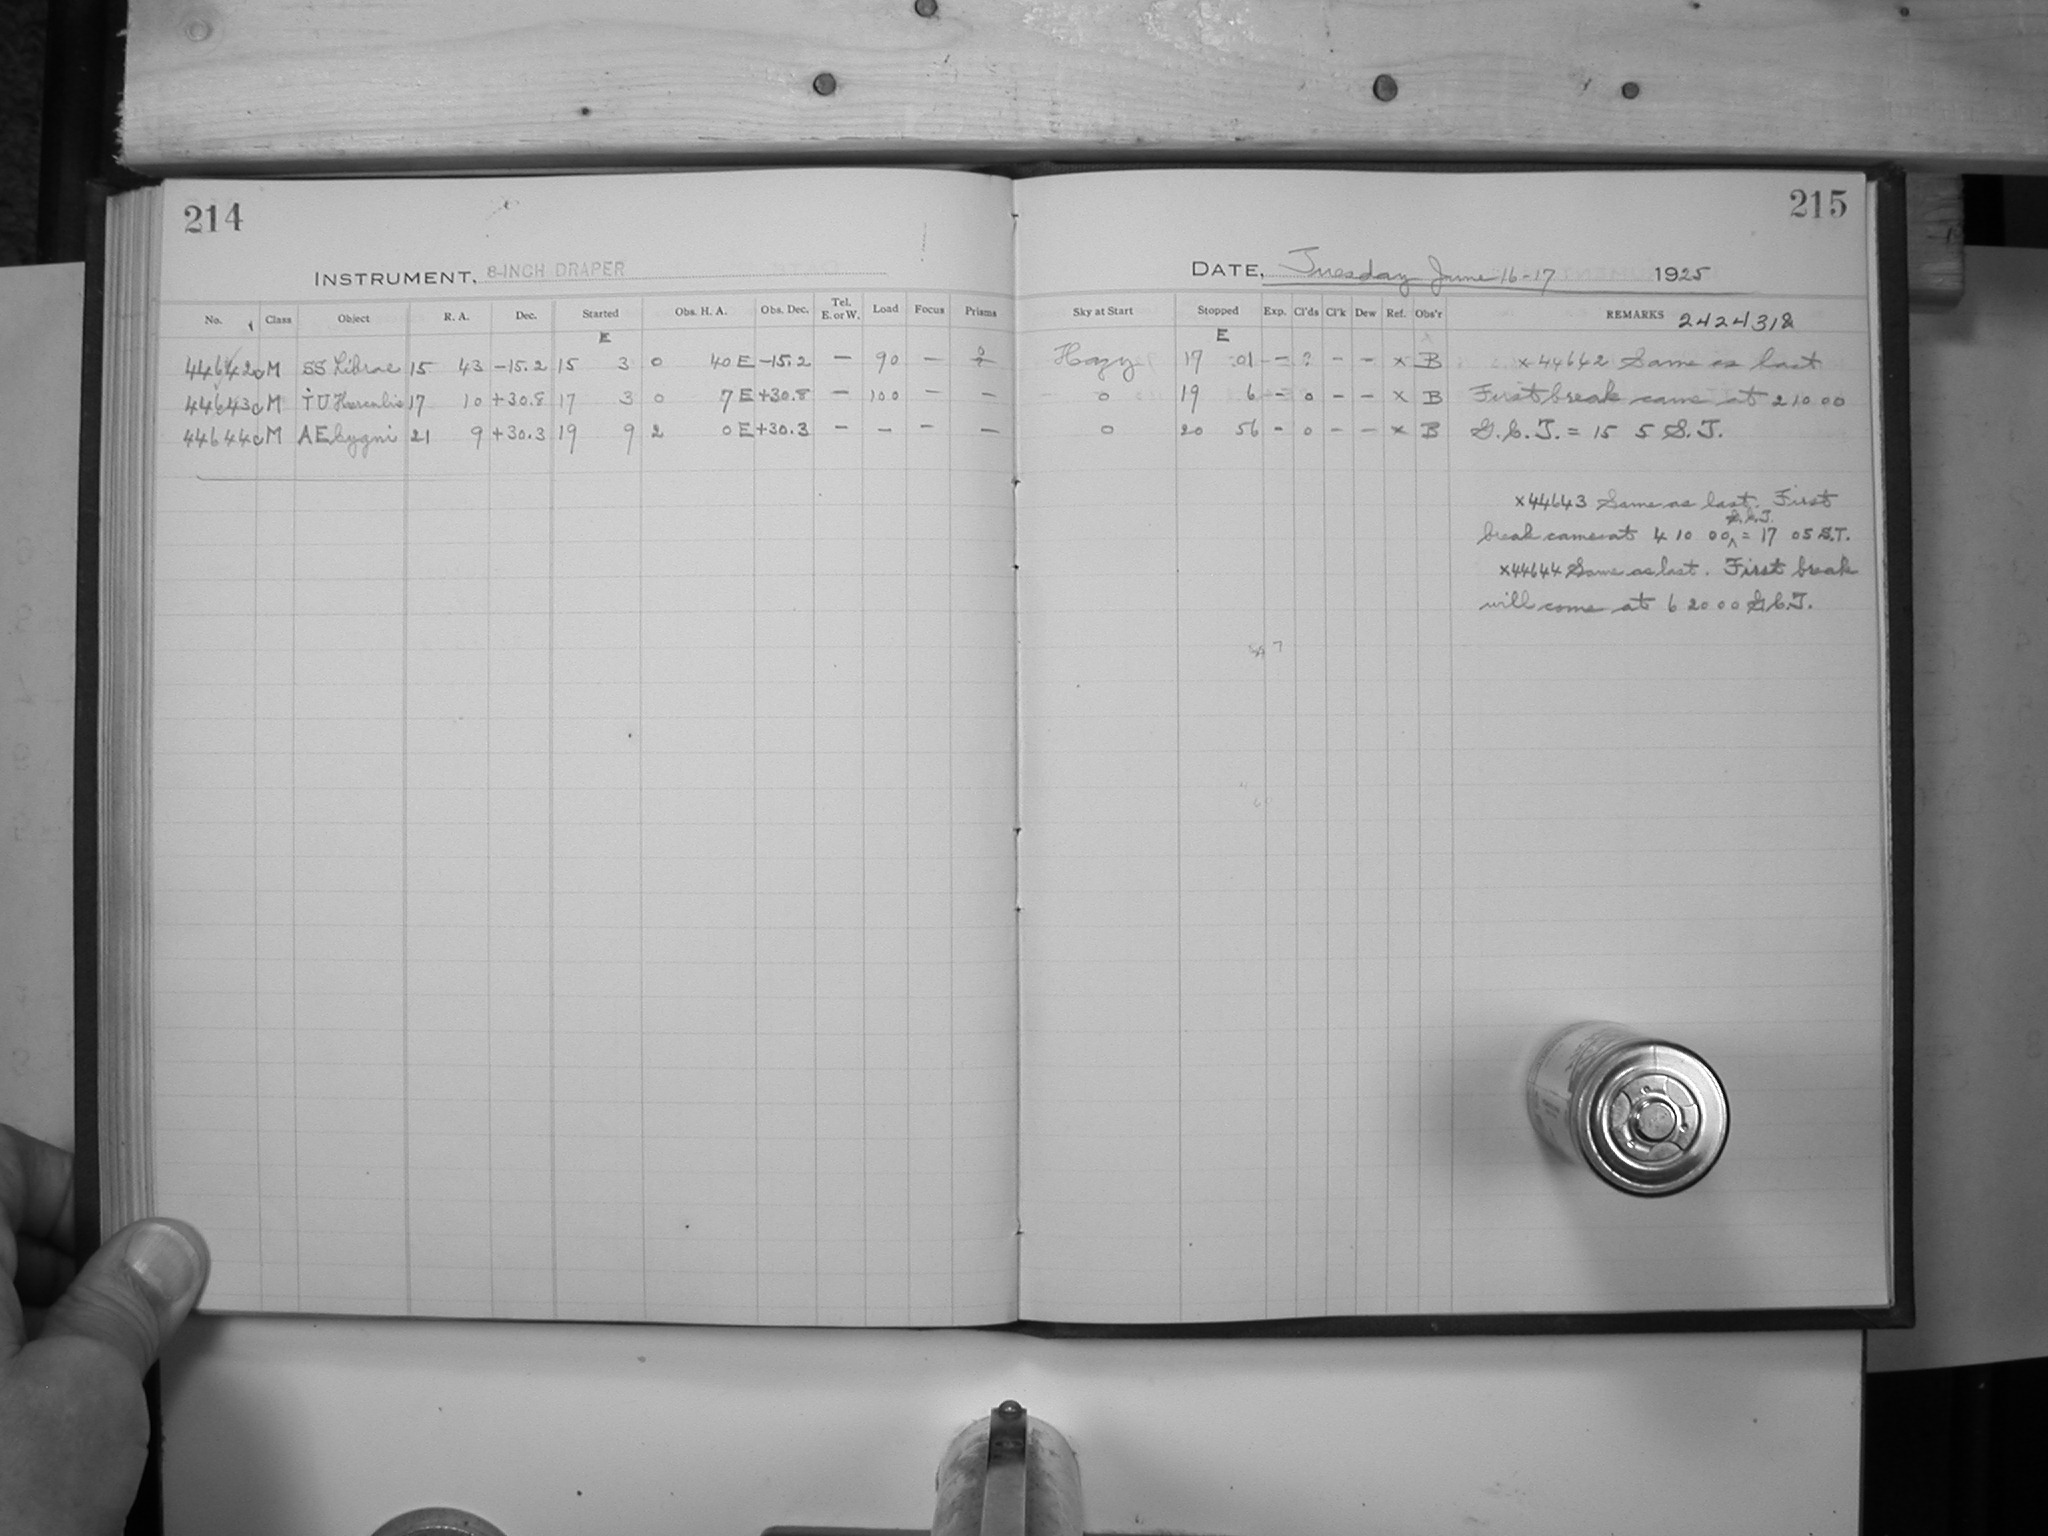 214
INSTRUMENT, 8-INCH DRAPER
No. Class Object R. A. Dec. Started Obs. H. A. Obs. Dec. Tel. E. or W. Load Focus Prisms
E
44642 c M SS Librae 15 43 -15.2 15 3 0 40 E -15.2 — 90 —
44643 c M TU Herculis 17 10 +30.8 17 3 0 7 E +30.8 — 100 — —
44644 c M AE Cygni 21 9 +30.3 19 9 2 0 E +30.3 — — — —
215
DATE, Tuesday June 16-17 1925
Sky at Start Stopped Exp. Cl'ds Cl'k Dew Ref. Obs'r REMARKS 2424318
E
Hazy 17 01 - ? - - x B x 44642 Same as last
0 19 6 - 0 - - x B First break came at 2 10 00
0 20 56 - 0 - - x B G.C.T. = 15 5 S.T.
x 44643 Same as last. First
G.C.T.
break came at 4 10 00 ^ = 17 05 S.T.
x 44644 Same as last. First break
will come at 6 20 00 G.C.T.